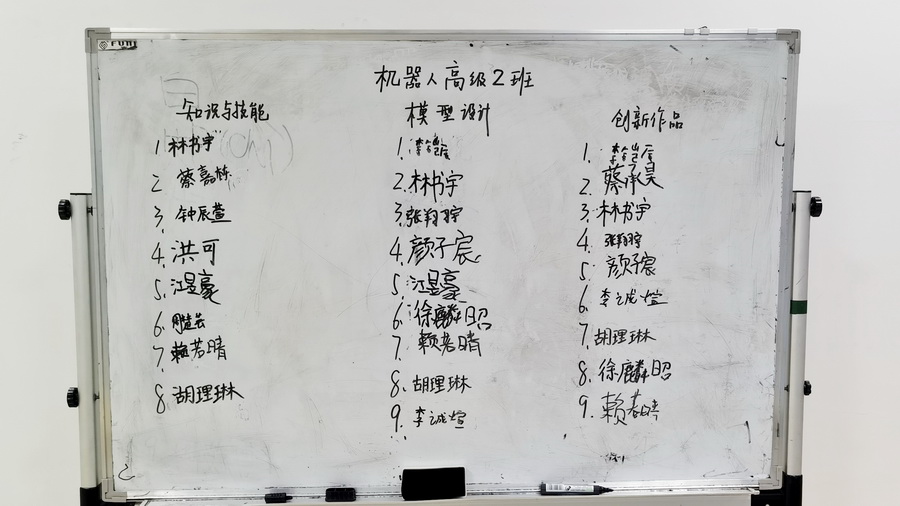 机器人高级2班
知识与技能
1 林书宇
2 蔡嘉栋
3. 钟辰萱
4. 洪可
5. 江昱豪
6.
7. 赖若晴
8 胡理琳
模型设计
1.
2. 林书宇
3. 张翔宇
4. 颜子宸
5. 江昱豪
6. 徐麟昭
7. 赖若晴
8. 胡理琳
9. 李诚煊
创新作品
1.
2. 蔡承昊
3. 林书宇
4. 张翔宇
5. 颜子宸
6. 李诚煊
7. 胡理琳
8. 徐麟昭
9. 赖若晴